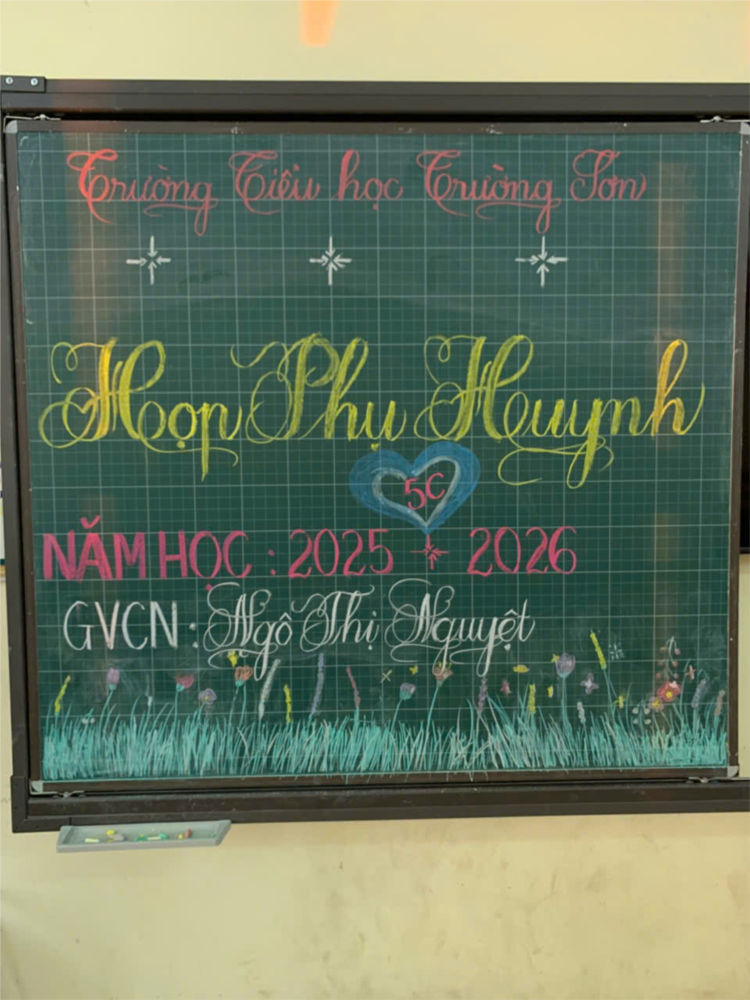 Trường Tiểu học Trường Sơn
Họp Phụ Huynh
5C
NĂM HỌC : 2025 - 2026
GVCN : Ngô Thị Nguyệt